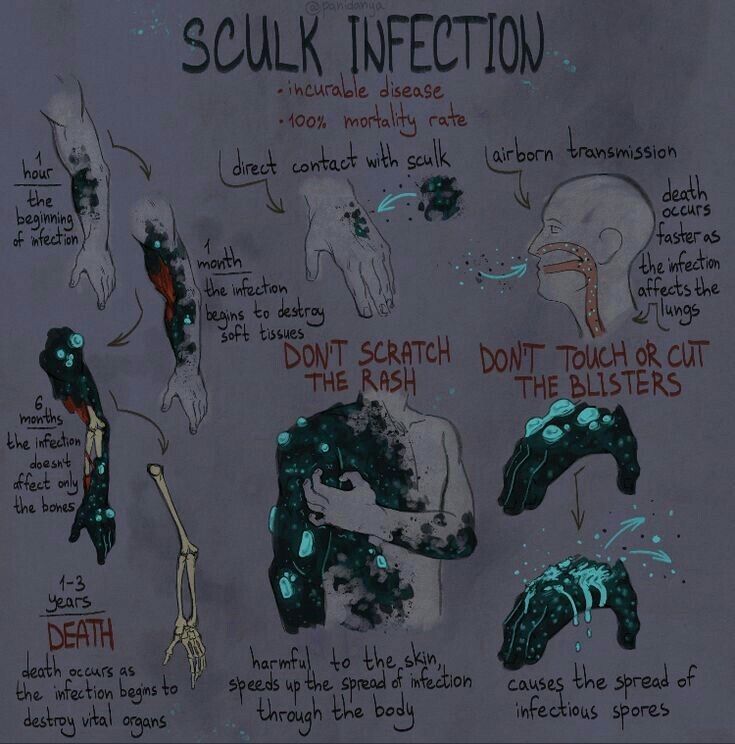 @panidanya
SCULK INFECTION
• incurable disease
• 100% mortality rate
1
hour
the
beginning
of infection
1
month
the infection
begins to destroy
soft tissues
6
months
the infection
doesn't
affect only
the bones
1-3
years
DEATH
death occurs as
the infection begins to
destroy vital organs
direct contact with sculk
airborn transmission
death
occurs
faster as
the infection
affects the
lungs
DON'T SCRATCH
THE RASH
harmful to the skin,
speeds up the spread of infection
through the body
DON'T TOUCH OR CUT
THE BLISTERS
causes the spread of
infectious spores